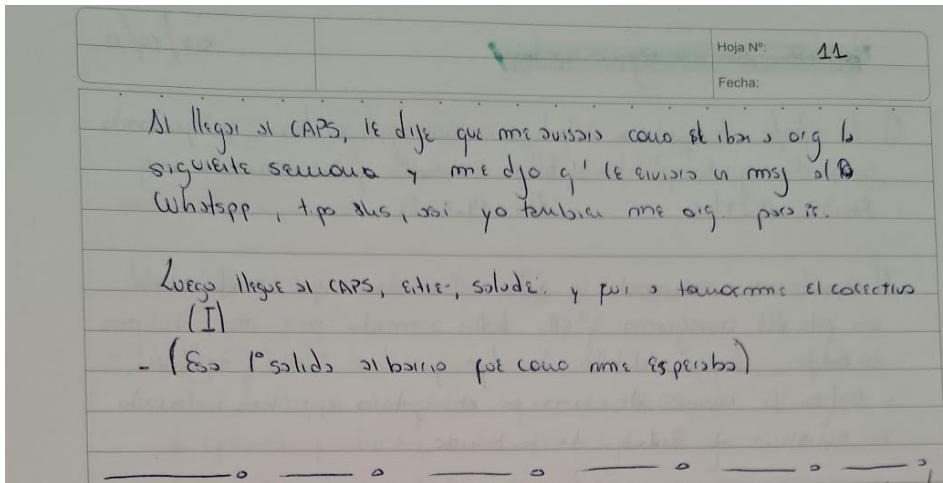 Hoja Nº: 11
Fecha:
Al llegar al CAPS, le dije que me avisara como se iban a org la
siguiente semana y me djo q' le enviara un msj al
Whatspp, tipo sus, asi yo tambien me org. para ir.
Luego llegue al CAPS, entre, salude. y fui a tomarme el colectivo
(I)
- (Esa 1º salida al barrio fue como me esperaba)